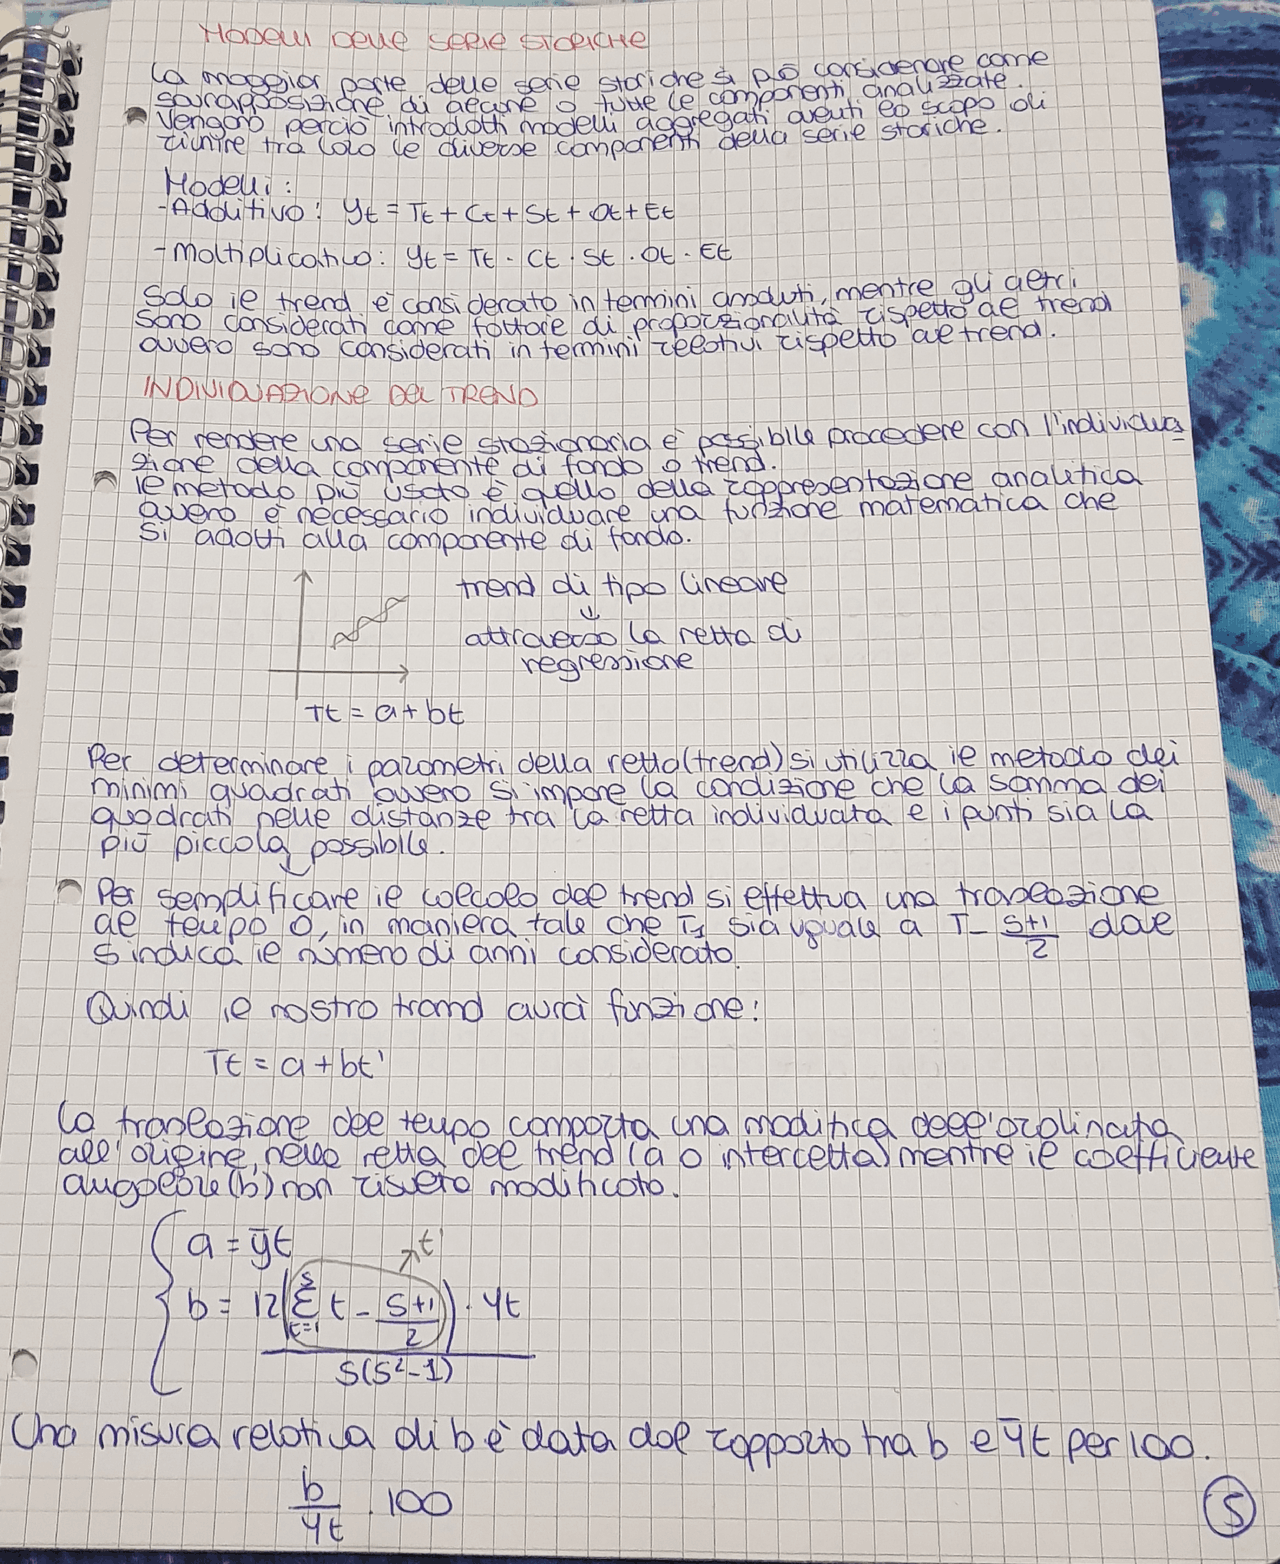 MODELLI DELLE SERIE STORICHE
La maggior parte delle serie storiche si può considerare come
sovrapposizione di alcune o tutte le componenti analizzate.
Vengono perciò introdotti modelli aggregati aventi lo scopo di
riunire tra loro le diverse componenti della serie storiche.
Modelli:
-Additivo: yt = Tt + Ct + St + Ot + Et
-Moltiplicativo: yt = Tt · Ct · St · Ot · Et
Solo il trend è considerato in termini assoluti, mentre gli altri
sono considerati come fattore di proporzionalità rispetto al trend
ovvero sono considerati in termini relativi rispetto al trend.
INDIVIDUAZIONE DEL TREND
Per rendere una serie stazionaria è possibile procedere con l'individua
zione della componente di fondo o trend.
il metodo più usato è quello della rappresentazione analitica
ovvero è necessario individuare una funzione matematica che
si adatti alla componente di fondo.
trend di tipo lineare
↓
attraverso la retta di
regressione
Tt = a + bt
Per determinare i parametri della retta (trend) si utilizza il metodo dei
minimi quadrati ovvero si impone la condizione che la somma dei
quadrati nelle distanze tra la retta individuata e i punti sia la
più piccola possibile.
Per semplificare il calcolo del trend si effettua una traslazione
al tempo 0, in maniera tale che T1 sia uguale a T - S+1/2 dove
S indica il numero di anni considerato
Quindi il nostro trand avrà funzione:
Tt = a + bt'
La traslazione del tempo comporta una modifica dell'ordinata
all'origine, nella retta del trend (a o intercetta) mentre il coefficiente
angolare (b) non risulta modificato.
a = ȳt
t'
b = 12(Σ t=1 s t - S+1/2) · yt / S(S²-1)
Una misura relativa di b è data dal rapporto tra b e ȳt per 100.
b/ȳt · 100
5